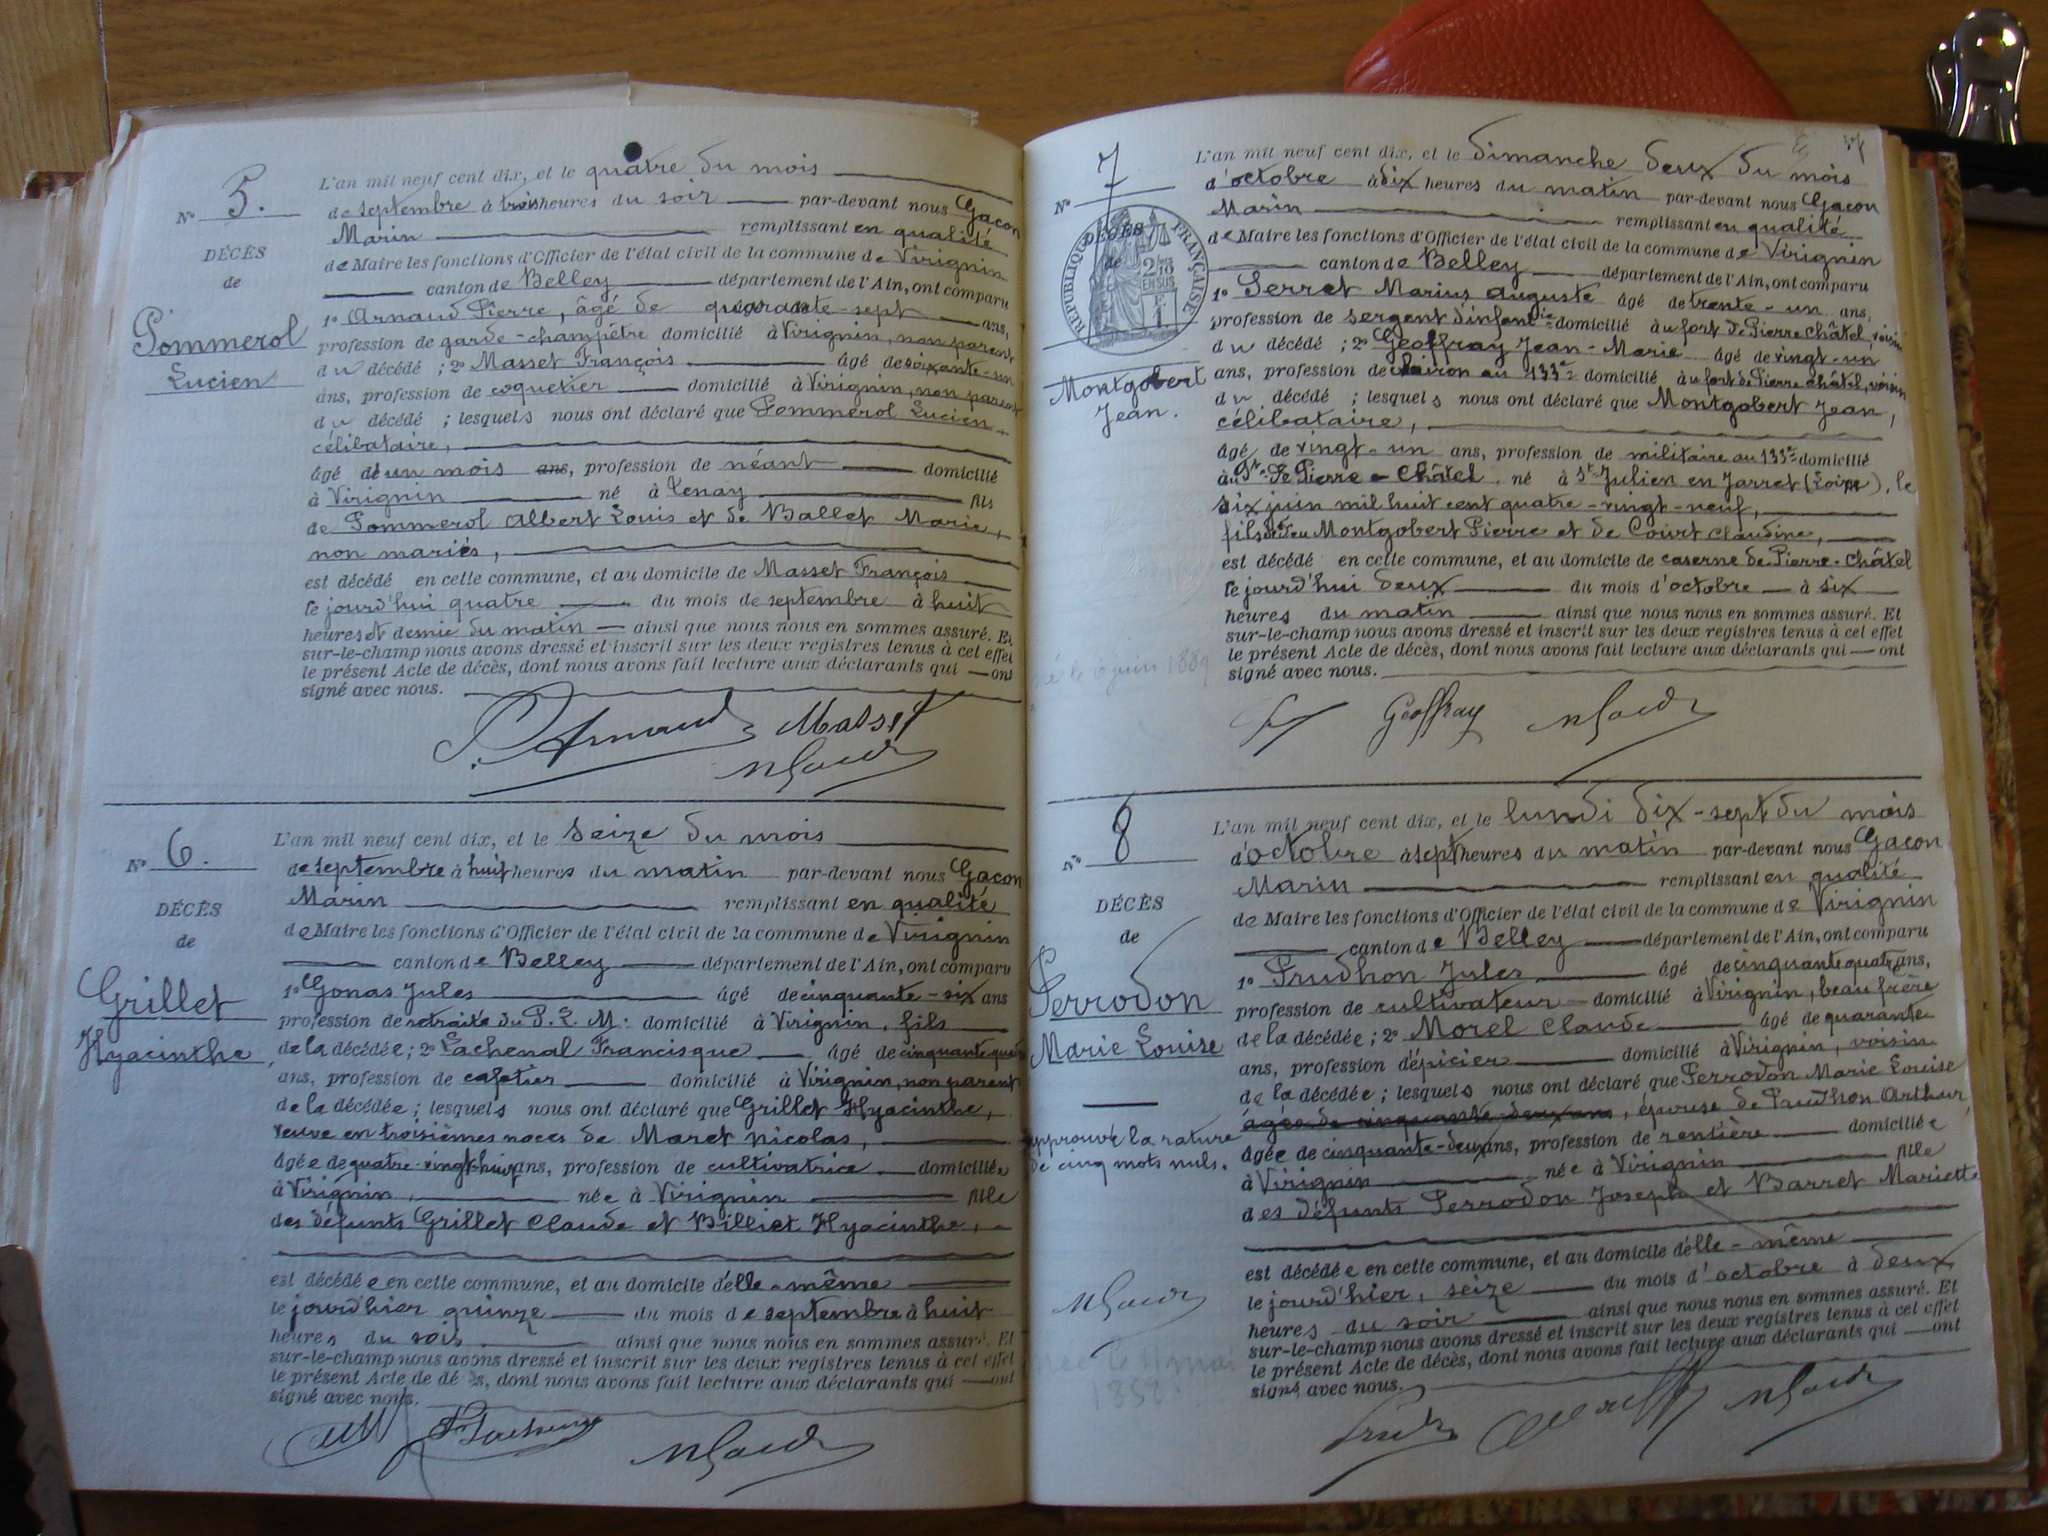 N° 5.
DÉCÈS
de
Pommerol
Lucien
L'an mil neuf cent dix, et le quatre du mois
de septembre à trois heures du soir par-devant nous Gacon
Marin remplissant en qualité
de Maire les fonctions d'Officier de l'état civil de la commune de Virignin
canton de Belley département de l'Ain, ont comparu
1° Arnaud Pierre, âgé de quarante-sept ans,
profession de garde-champêtre domicilié à Virignin, non parent
du décédé ; 2° Masset François âgé de soixante-un
ans, profession de coquetier domicilié à Virignin, non parent
du décédé ; lesquels nous ont déclaré que Pommerol Lucien
célibataire,
âgé de un mois ans, profession de néant domicilié
à Virignin né à Tenay fils
de Pommerol Albert Louis et de Ballet Marie,
non mariés,
est décédé en cette commune, et au domicile de Masset François
le jourd'hui quatre du mois de septembre à huit
heures et demie du matin ainsi que nous nous en sommes assuré. Et
sur-le-champ nous avons dressé et inscrit sur les deux registres tenus à cet effet
le présent Acte de décès, dont nous avons fait lecture aux déclarants qui ont
signé avec nous.
P. Arnaud Masset
M Gacon
N° 6.
DÉCÈS
de
Grillet
Hyacinthe
L'an mil neuf cent dix, et le seize du mois
de septembre à huit heures du matin par-devant nous Gacon
Marin remplissant en qualité
de Maire les fonctions d'Officier de l'état civil de la commune de Virignin
canton de Belley département de l'Ain, ont comparu
1° Gonas Jules âgé de cinquante-six ans
profession de retraité du P. L. M. domicilié à Virignin, fils
de la décédée ; 2° Lachenal Francisque âgé de cinquante quatre
ans, profession de cafetier domicilié à Virignin, non parent
de la décédée ; lesquels nous ont déclaré que Grillet Hyacinthe,
veuve en troisièmes noces de Maret Nicolas,
âgée de quatre-vingt-huit ans, profession de cultivatrice domiciliée
à Virignin, née à Virignin fille
des défunts Grillet Claude et Billiet Hyacinthe,
est décédée en cette commune, et au domicile d'elle-même
le jourd'hier quinze du mois de septembre à huit
heures du soir ainsi que nous nous en sommes assuré. Et
sur-le-champ nous avons dressé et inscrit sur les deux registres tenus à cet effet
le présent Acte de décès, dont nous avons fait lecture aux déclarants qui ont
signé avec nous.
M Gacon
N° 7
DÉCÈS
de
RÉPUBLIQUE FRANÇAISE
2/10 EN SUS
Montgobert
Jean.
né le 6 juin 1889
L'an mil neuf cent dix, et le dimanche deux du mois
d'octobre à dix heures du matin par-devant nous Gacon
Marin remplissant en qualité
de Maire les fonctions d'Officier de l'état civil de la commune de Virignin
canton de Belley département de l'Ain, ont comparu
1° Perret Marius Auguste âgé de trente-un ans,
profession de sergent d'infanie domicilié au fort de Pierre Châtel, voisin
du décédé ; 2° Geoffray Jean-Marie âgé de vingt-un
ans, profession de clairon au 133e domicilié au fort de Pierre Châtel, voisin
du décédé ; lesquels nous ont déclaré que Montgobert Jean,
célibataire,
âgé de vingt-un ans, profession de militaire au 133e domicilié
au Ft de Pierre-Châtel, né à St Julien en Jarret (Loire), le
six juin mil huit cent quatre-vingt-neuf,
fils de feu Montgobert Pierre et de Court Claudine,
est décédé en cette commune, et au domicile de caserne de Pierre-Châtel
le jourd'hui deux du mois d'octobre à six
heures du matin ainsi que nous nous en sommes assuré. Et
sur-le-champ nous avons dressé et inscrit sur les deux registres tenus à cet effet
le présent Acte de décès, dont nous avons fait lecture aux déclarants qui ont
signé avec nous.
Geoffray M Gacon
N° 8
DÉCÈS
de
Perrodon
Marie Louise
approuvé la rature
de cinq mots nuls.
M Gacon
née le 11 mai
1858
L'an mil neuf cent dix, et le lundi dix-sept du mois
d'octobre à sept heures du matin par-devant nous Gacon
Marin remplissant en qualité
de Maire les fonctions d'Officier de l'état civil de la commune de Virignin
canton de Belley département de l'Ain, ont comparu
1° Prudhon Jules âgé de cinquante quatre ans,
profession de cultivateur domicilié à Virignin, beau frère
de la décédée ; 2° Morel Claude âgé de quarante
ans, profession d'épicier domicilié à Virignin, voisin
de la décédée ; lesquels nous ont déclaré que Perrodon Marie Louise
âgée de cinquante-deux ans, épouse de Prudhon Arthur,
âgée de cinquante-deux ans, profession de rentière domiciliée
à Virignin née à Virignin fille
des défunts Perrodon Joseph et Barret Mariette
est décédée en cette commune, et au domicile d'elle-même
le jourd'hier, seize du mois d'octobre à deux
heures du soir ainsi que nous nous en sommes assuré. Et
sur-le-champ nous avons dressé et inscrit sur les deux registres tenus à cet effet
le présent Acte de décès, dont nous avons fait lecture aux déclarants qui ont
signé avec nous.
M Gacon